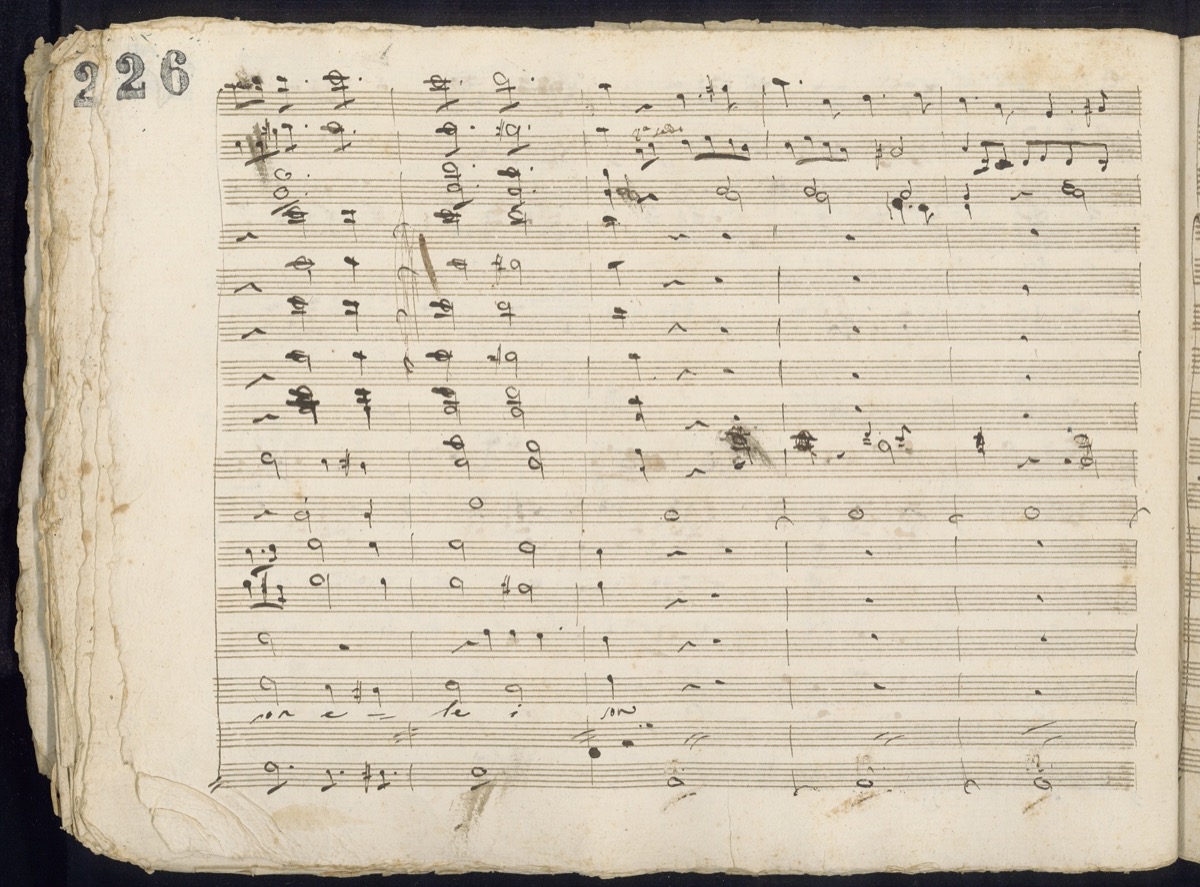 226
son e = le i son